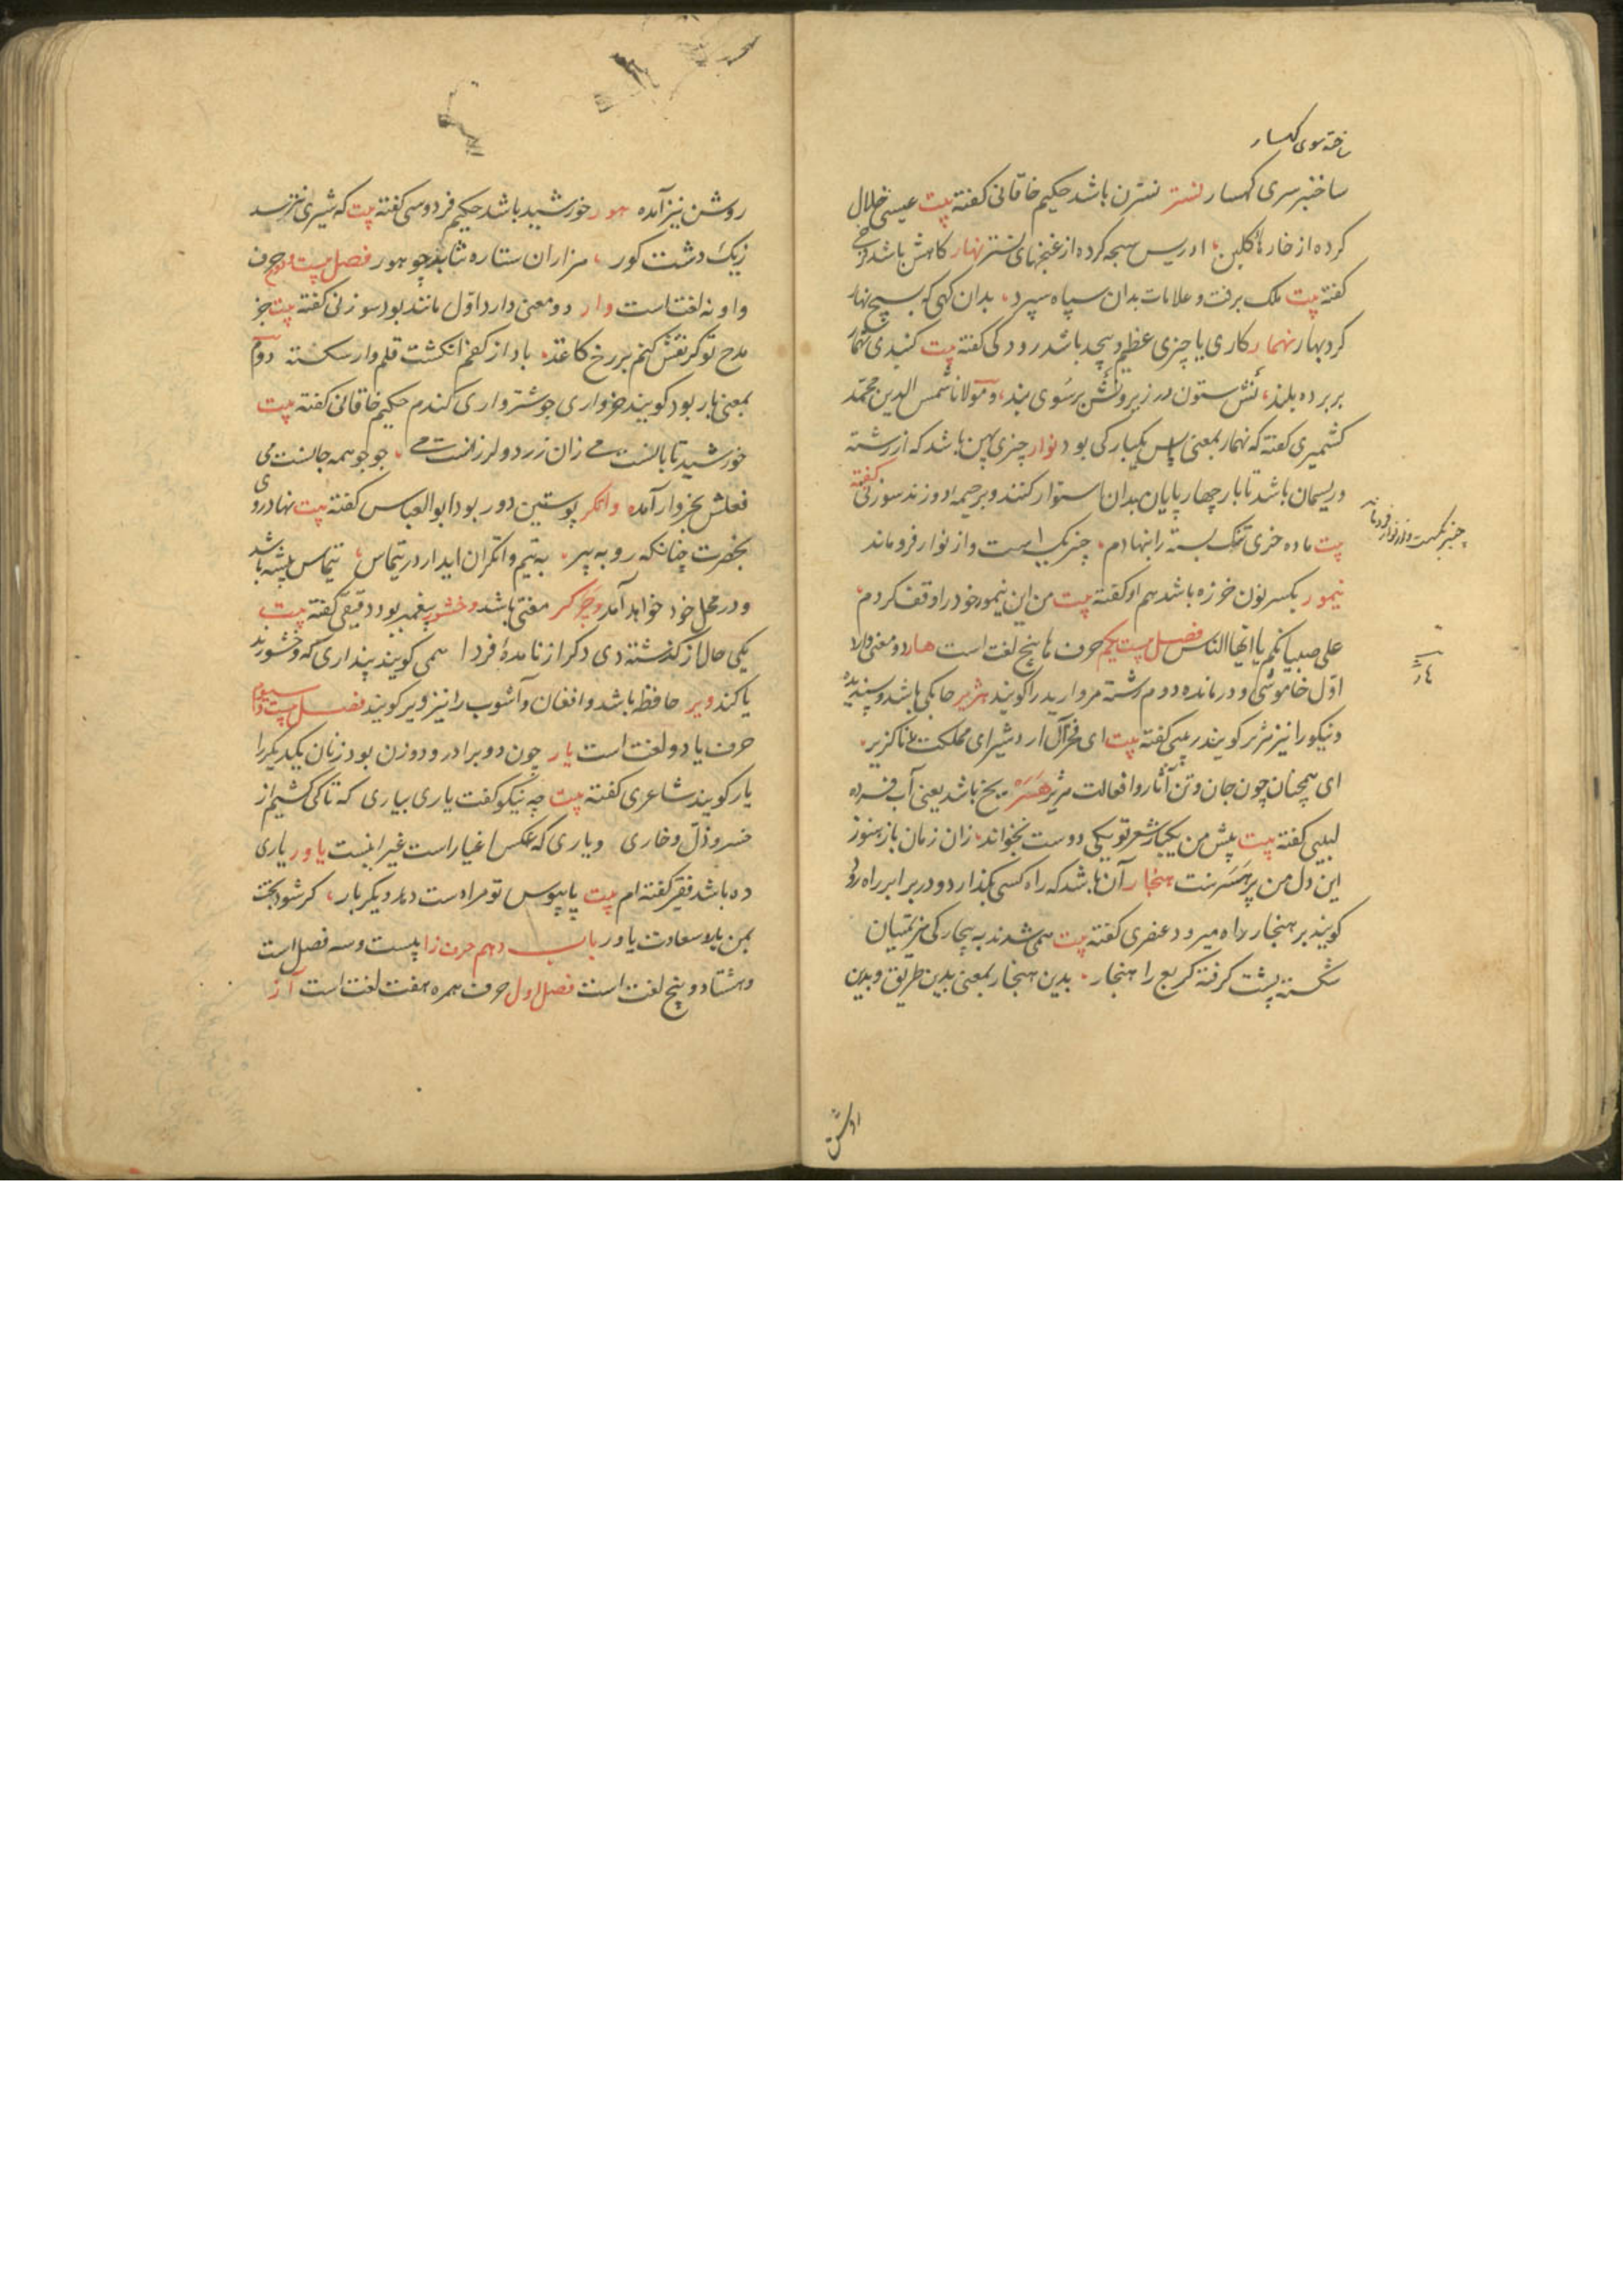 ساخته سوی کهسار
ساختبر سری کهسار نستر نسترن باشد حکیم خاقانی کفته بیت عیسی خلال
کرده از خارهای کلبن ادریس سبحه کرده از غنچهای نستر نهار کاهش باشد
کفته بیت ملک برفت و علامات بدان سپاه سپرد بدان کهی که بسیج نهار
کرد بهار نهمار کاری یا چیزی عظیم و بیحد باشد رودکی کفته بیت کنبدی نهمار
بربرده بلند نش ستون در زیر و نش بر سوی بند و مولانا شمس الدین محمد
کشمیری کفته که نهمار بمعنی یکبارکی بود نوار چیزی پهن باشد که از رشته
و ریسمان باشد تا بار چهارپایان بدان استوار کنند و بر خیمه ا دوزند سوزنی کفته
بیت ماده خری تنک بسته را بنهادم چنبر بکست و از نوار فروماند
چنبر بکست و از نوار فروماند
نیمور بکسر نون خرزه باشد هم او کفته بیت من این نیمور خود را وقف کردم
علی صبیانکم یا ایها الناس فصل بیست یکم حرف ها پنج لغت است هار دو معنی دارد
اول خاموشی و درمانده دوم رشته مروارید را کویند هژیر چابکی باشد و پسندیده
و نیکو را نیز هژیر کویند کفته بیت ای فخر آل اردشیر ای مملکت را ناکزیر
ای همچنان چون جان و تن آثار و افعالت هژیر هسر یخ باشد یعنی آب فسرده
لبیبی کفته بیت پیش من یکبار شعر تو یکی دوست بخواند زان زمان باز هنوز
این دل من پر هسرست هنجار آن باشد که راه کسی بکذارد و در برابر راه رود
کویند بر هنجار راه میرود عنصری کفته بیت همی شدند به بیچارکی هزیمتیان
شکسته پشت و کرفته کریغ را هنجار بدین هنجار بمعنی بدین طریق و بدین
روشن نیز آمده هور خورشید باشد حکیم فردوسی کفته بیت که شیری نترسد
زیک دشت کور هزاران ستاره نتابد چو هور فصل بیست دوم حرف
واو نه لغت است وار دو معنی دارد اول مانند بود سوزنی کفته بیت جز
مدح تو کر نقش کنم بر رخ کاغذ باد از کفم انکشت قلم وار شکسته دوم
بمعنی بار بود کویند خرواری جو شترواری کندم حکیم خاقانی کفته بیت
خورشید تا بالنست می زان زرد و لرزانست می جوجو همه جانست می
فعلش بخروار آمده واتکر پوستین دوز بود ابوالعباس کفته بیت نهاد روی
بحضرت چنانکه روبه پیر به تیم واتکران آید از در تیماس تیماس بیشه باشد
و در محل خود خواهد آمد وجرکر مفتی باشد وخشور پیغمبر بود دقیقی کفته بیت
یکی حال از کذشته دی دکر از نامدهٔ فردا همی کویند پنداری که وخشورند
یا کندا ویر حافظه باشد و افغان و آشوب را نیز ویر کویند فصل بیست و سیوم
حرف یا دو لغت است یار چون دو برادر و دو زن بود زنان یکدیکر را
یار کویند شاعری کفته بیت چه نیکو کفت یاری بیاری که تا کی کشیم از
خسر و ذل و خاری و یاری که عکس اغیار است غیر اینست یاور یاری
ده باشد فقیر کفته ام بیت پابوس تو مرا دست دهد دیکر بار کر شود بخت
بمن یار و سعادت یاور باب دهم حرف زا بیست و سه فصل است
و هشتاد و پنج لغت است فصل اول حرف همره هفت لغت است آز